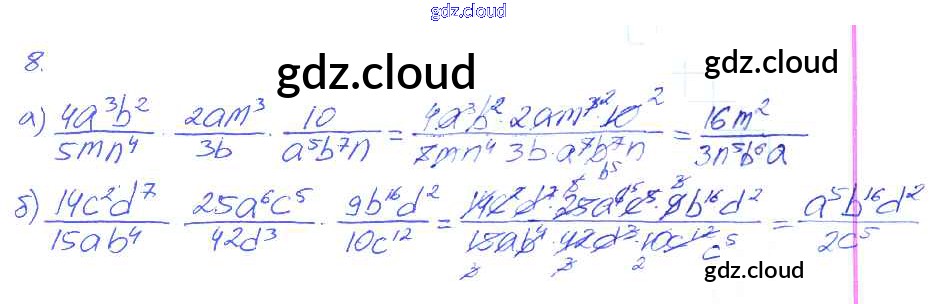 gdz.cloud
8.
gdz.cloud
gdz.cloud
а) 4a³b²/5mn⁴ · 2am³/3b · 10/a⁵b⁷n = 4a³b² · 2am³ · 10 2/5mn⁴ 3b · a⁷b⁷n b⁵ = 16m²/3n⁵b⁶a
б) 14c²d⁷/15ab⁴ · 25a⁶c⁵/42d³ · 9b¹⁶d²/10c¹² = 14c²d⁷ · 25a⁶c⁵ · 9b¹⁶d²/15ab⁴ · 42d³ · 10c¹² c⁵ = a⁵b¹⁶d²/2c⁵
gdz.cloud
gdz.cloud